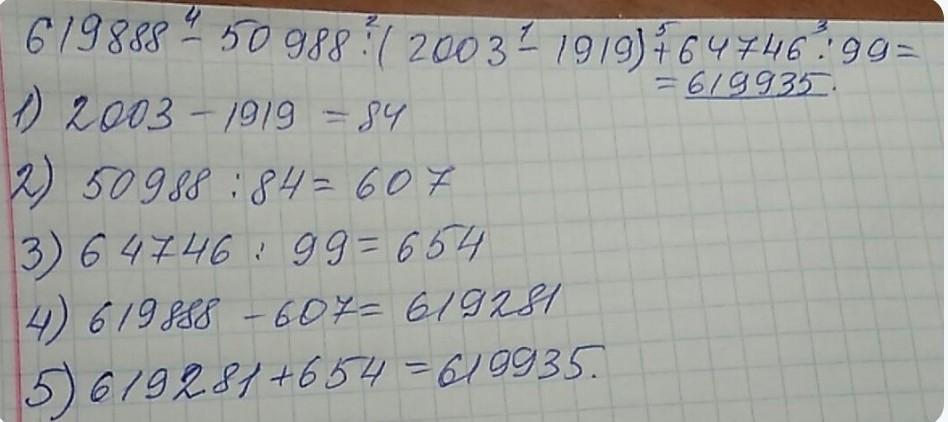 619888 - 50988 : ( 2003 - 1919) + 64746 : 99 =
= 619935.
1) 2003 - 1919 = 84
2) 50988 : 84 = 607
3) 64746 : 99 = 654
4) 619888 - 607 = 619281
5) 619281 + 654 = 619935.